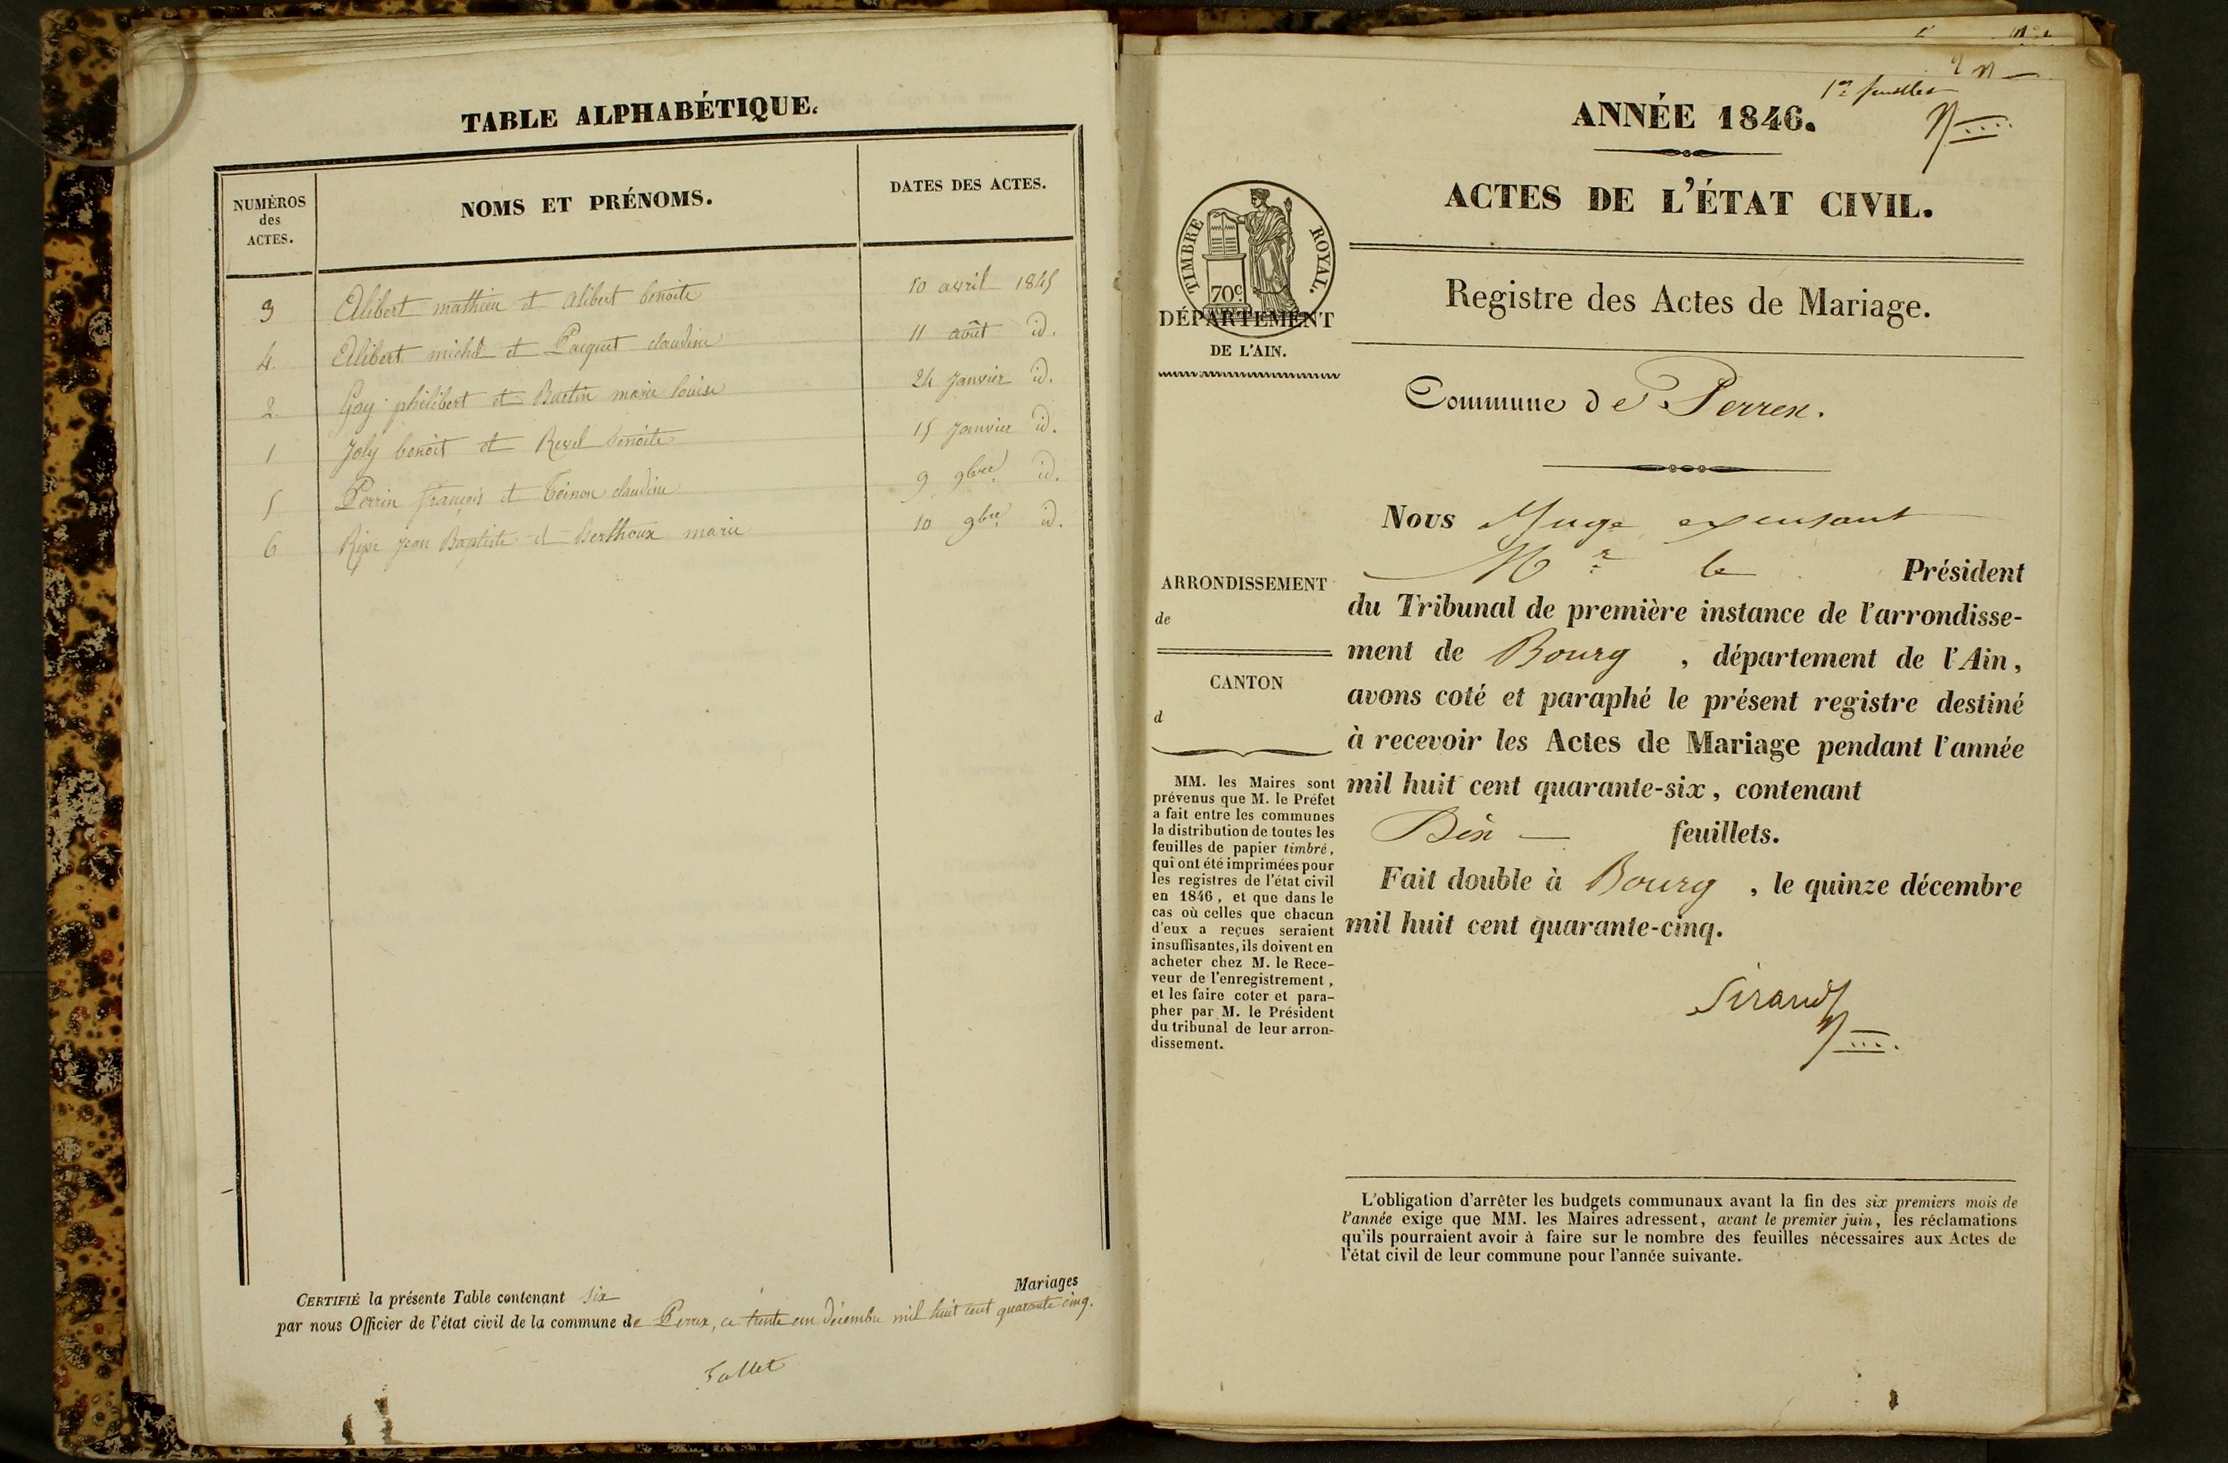 TABLE ALPHABÉTIQUE.
NUMÉROS
des
ACTES.
NOMS ET PRÉNOMS.
DATES DES ACTES.
3 Alibert mathieu et alibert benoite 10 avril 1845
4. Alibert michel et Pacquet claudine 11 août id.
2. Gay philibert et marie louise 24 Janvier id.
1 Joly benoit et Revel benoite 15 Janvier id.
5 Perrin françois et claudine 9 9bre id.
6 Jean Baptiste et Berthoux marie 10 9bre id.
CERTIFIÉ la présente Table contenant six Mariages
par nous Officier de l'état civil de la commune de Perrex, ce trente un décembre mil huit cent quarante cinq.
1er feuillet
ANNÉE 1846.
ACTES DE L'ÉTAT CIVIL.
TIMBRE ROYAL.
70c
DÉPARTEMENT
DE L'AIN.
Registre des Actes de Mariage.
Commune de Perrex.
Nous Juge
Mr le Président
du Tribunal de première instance de l'arrondisse-
ment de Bourg , département de l'Ain,
avons coté et paraphé le présent registre destiné
à recevoir les Actes de Mariage pendant l'année
mil huit cent quarante-six, contenant
Dix feuillets.
Fait double à Bourg , le quinze décembre
mil huit cent quarante-cinq.
Sirand
ARRONDISSEMENT
de
CANTON
d
MM. les Maires sont
prévenus que M. le Préfet
a fait entre les communes
la distribution de toutes les
feuilles de papier timbré,
qui ont été imprimées pour
les registres de l'état civil
en 1846, et que dans le
cas où celles que chacun
d'eux a reçues seraient
insuffisantes, ils doivent en
acheter chez M. le Rece-
veur de l'enregistrement,
et les faire coter et para-
pher par M. le Président
du tribunal de leur arron-
dissement.
L'obligation d'arrêter les budgets communaux avant la fin des six premiers mois de
l'année exige que MM. les Maires adressent, avant le premier juin, les réclamations
qu'ils pourraient avoir à faire sur le nombre des feuilles nécessaires aux Actes de
l'état civil de leur commune pour l'année suivante.